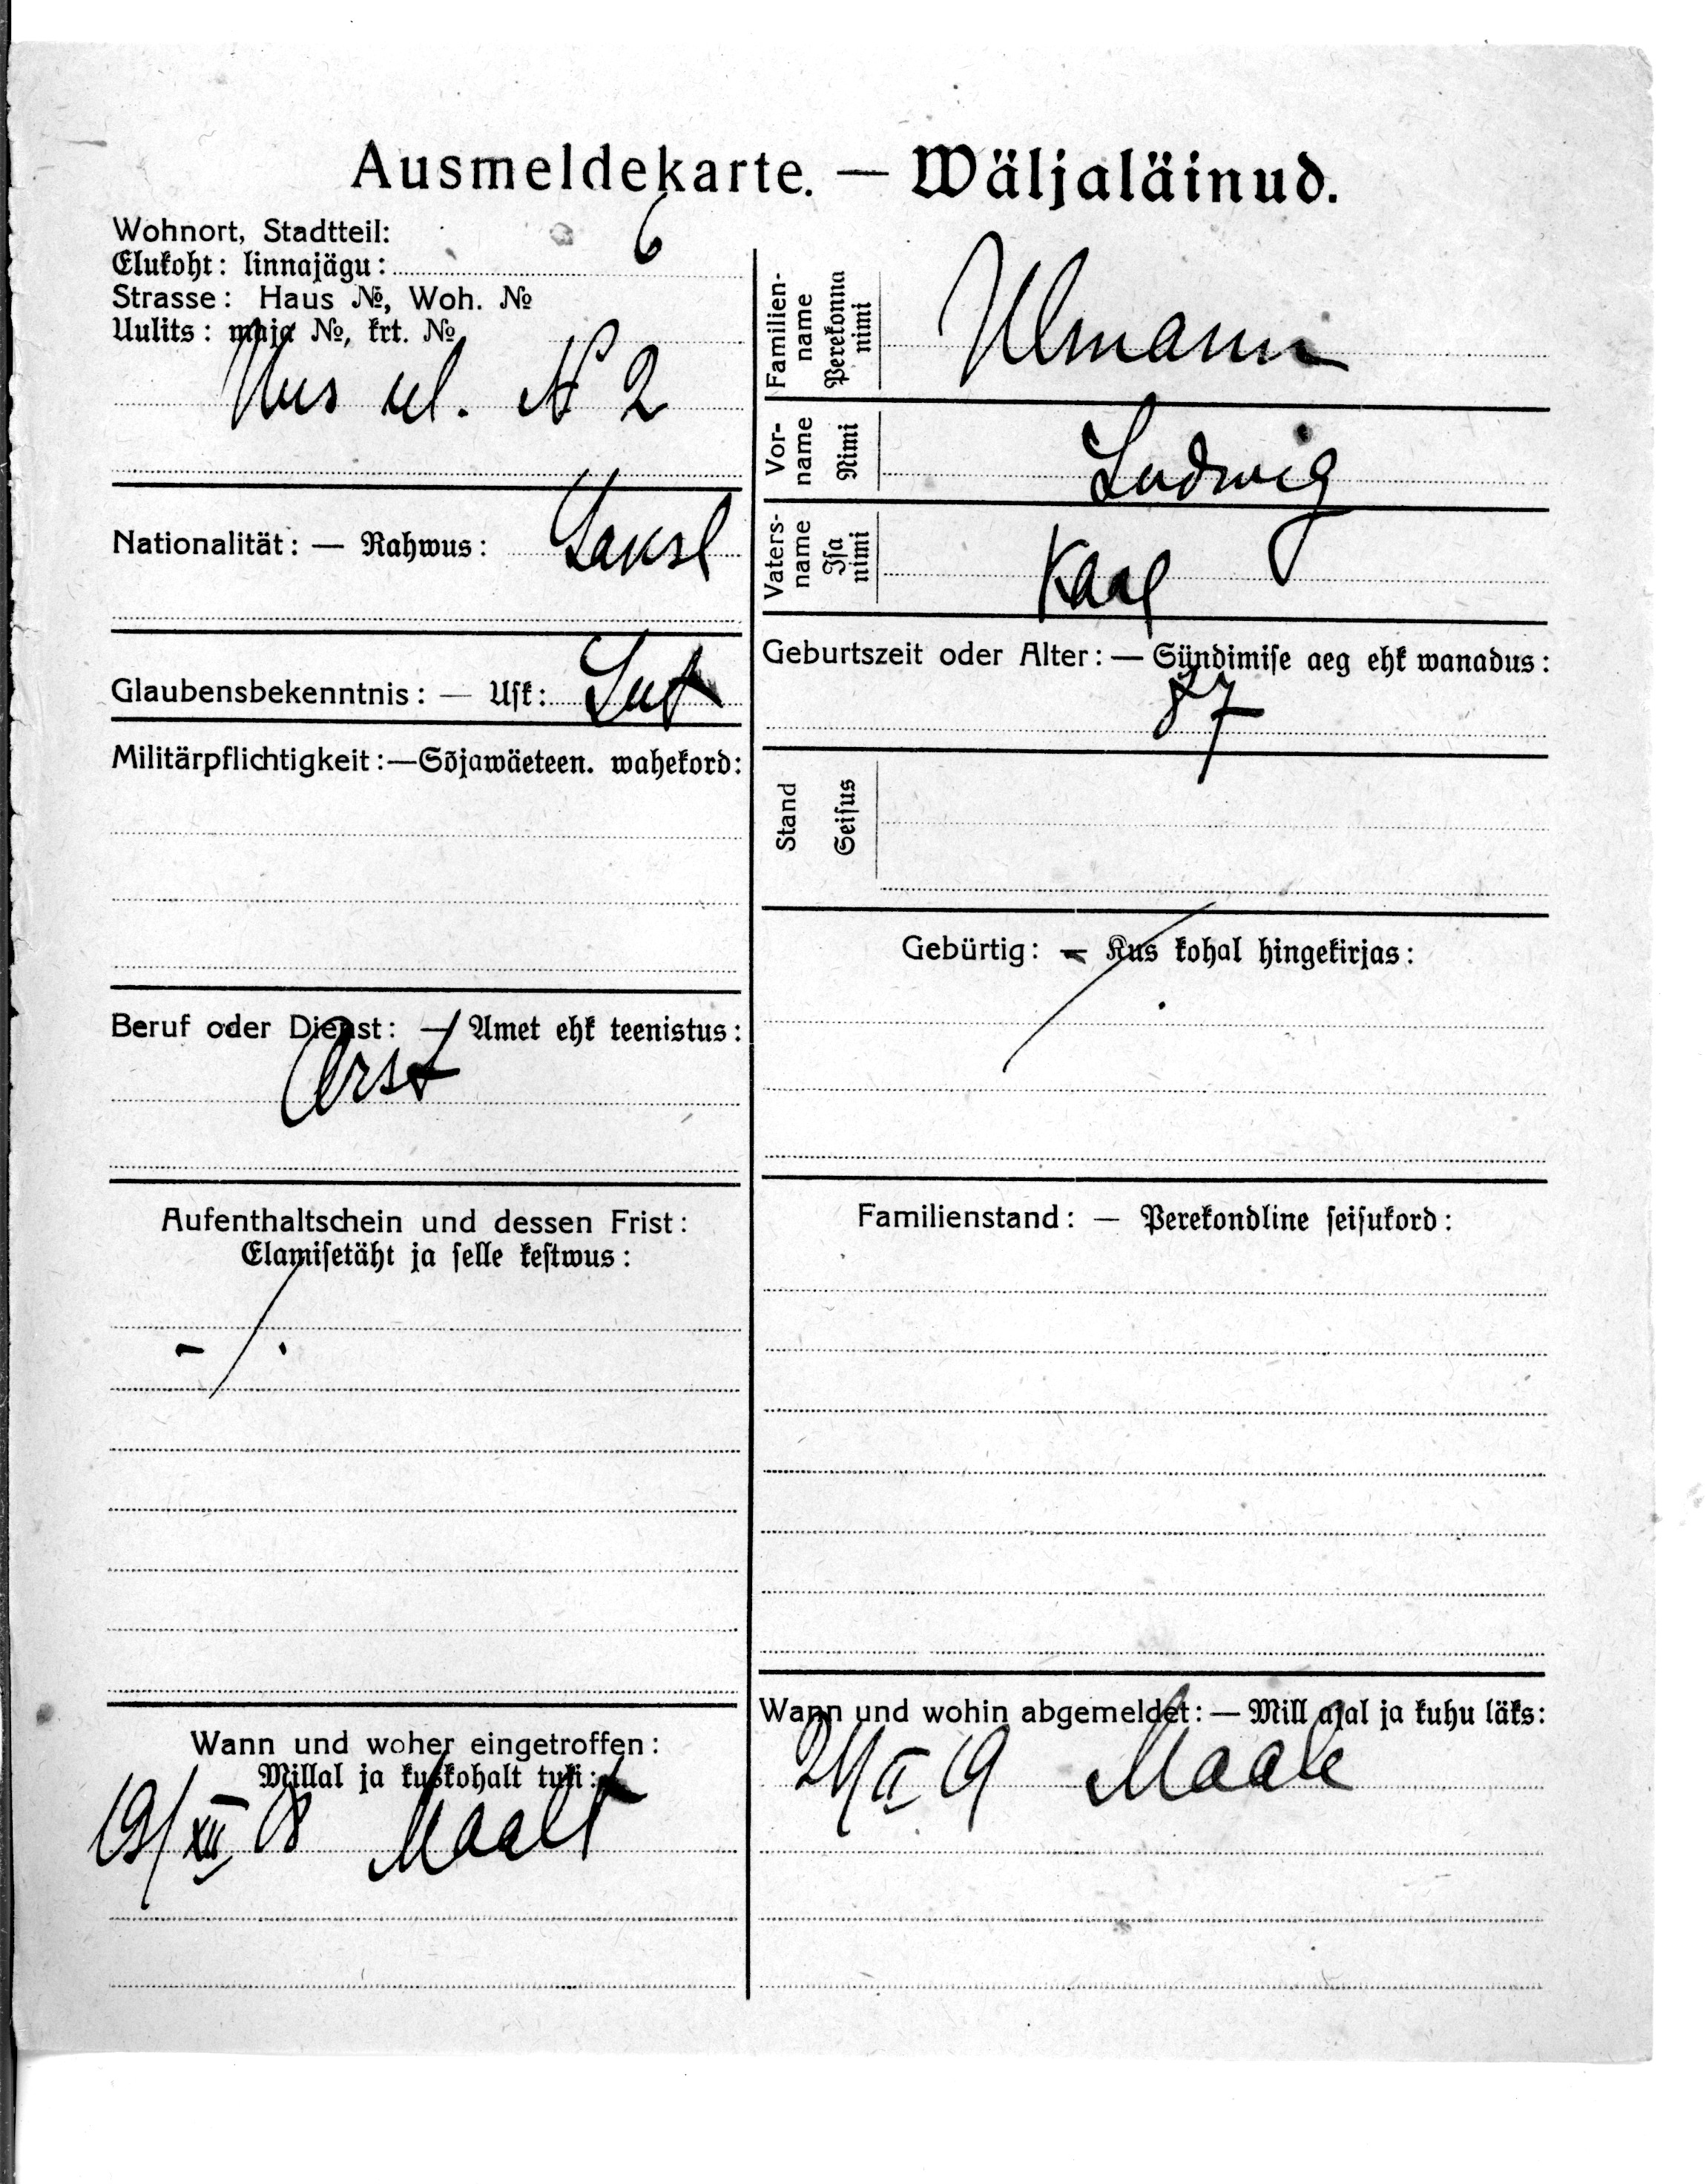 Ausmeldekarte. — Wäljaläinud.
Wohnort, Stadtteil:
Elukoht: linnajägu: 6
Strasse: Haus №, Woh. №
Uulits: maja №, krt. №
Uus ul. № 2
Nationalität: — Rahwus: Saksl
Glaubensbekenntnis: — Usk: Lut
Militärpflichtigkeit:—Sõjawäeteen. wahekord:
Beruf oder Dienst: — Amet ehk teenistus:
Arst
Aufenthaltschein und dessen Frist:
Elamisetäht ja selle kestwus:
Wann und woher eingetroffen:
Millal ja kuskohalt tuli:
19/XII 18 Maalt
Familien-
name
Perekonna
nimi
Ulmann
Vor-
name
Nimi
Ludwig
Vaters-
name
Isa
nimi
Geburtszeit oder Alter: — Sündimise aeg ehk wanadus:
87
Stand
Seisus
Gebürtig: — Kus kohal hingekirjas:
Familienstand: — Perekondline seisukord:
Wann und wohin abgemeldet: — Mill ajal ja kuhu läks:
19 Maale